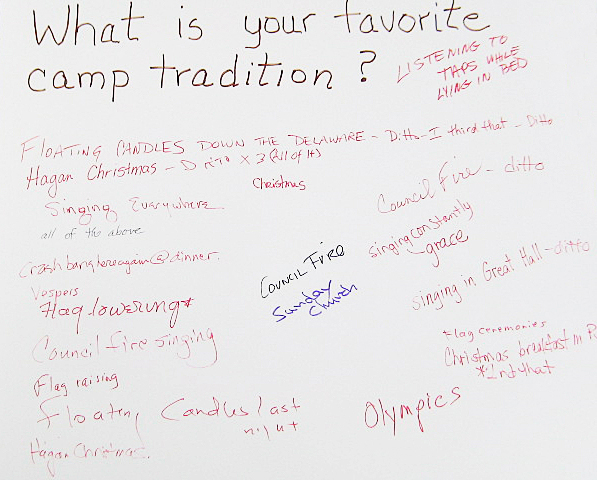 What is your favorite
camp tradition?
LISTENING TO
TAPS WHILE
LYING IN BED
FLOATING CANDLES DOWN THE DELAWARE - Ditto - I third that - Ditto
Hagan Christmas - Ditto X 3 (All of It)
Christmas
Council Fire - ditto
Singing Everywhere
all of the above
singing constantly
grace
crash bang here again @ dinner.
COUNCIL FIRE
Sunday
Church
singing in Great Hall - ditto
Vespers
Flag lowering*
Council fire singing
*Flag ceremonies
Christmas breakfast in P
*2nd that
Flag raising
Floating Candles last
night
Olympics
Hagan Christmas.